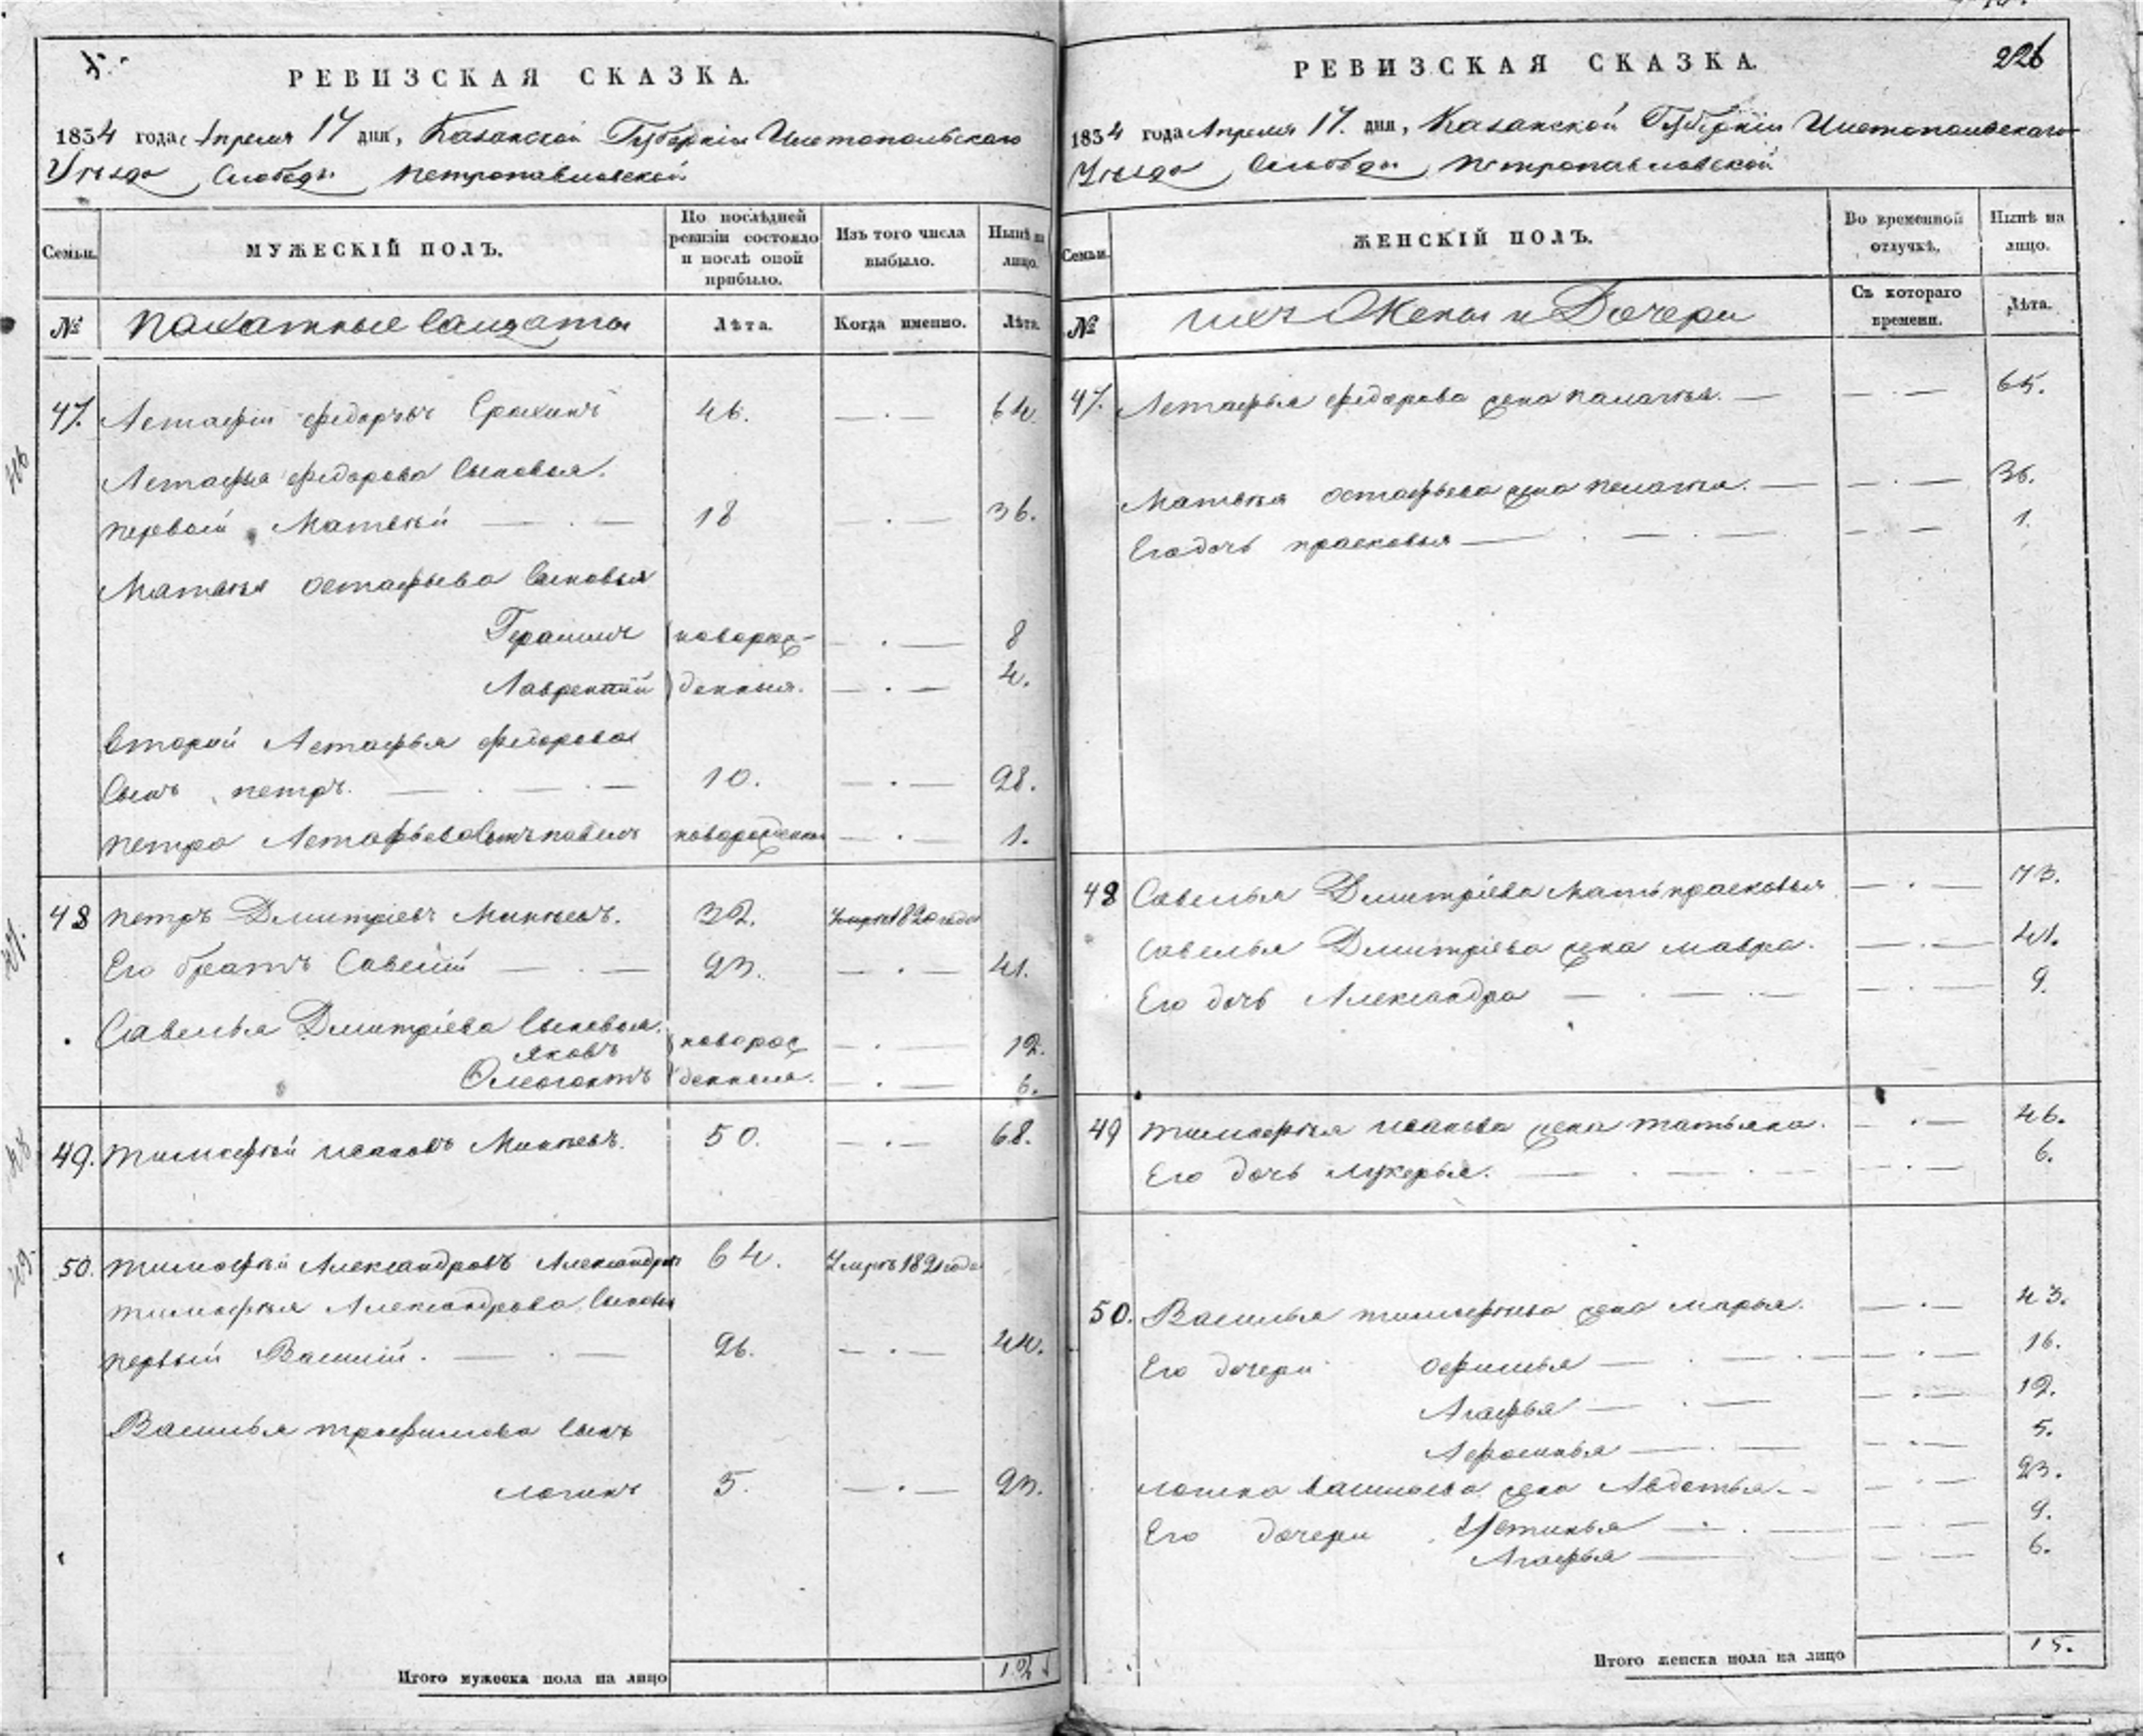 РЕВИЗСКАЯ СКАЗКА.
1834 года Апреля 17 дня, Казанской Губернии Чистопольскаго
Уезда Слободы Петропавловской
Семьи.
МУЖЕСКІЙ ПОЛЪ.
По послѣдней ревизіи состояло и послѣ оной прибыло.
Изъ того числа выбыло.
Нынѣ на лицо.
№
Пахатные Салдаты
Лѣта.
Когда именно.
Лѣта.
47. Астафій Федоровъ 46. 64.
Астафья Федорова Сыновья.
первый Матвѣй 18 36.
Матвѣя Остафьева Сыновья
Герасимъ новорож- 8
Лаврентій денныя. 4.
второй Астафья Федорова
Сынъ петръ. 10. 28.
петра Астафьева Сынъ павелъ новорожденный 1.
48 петръ Дмитріевъ Минѣевъ. 32. Умре 1820 года
Его братъ Савелій 23. 41.
Савелья Дмитріева Сыновья.
Яковъ новорож 12.
денныя. 6.
49. тимофѣй ивановъ Минѣевъ. 50. 68.
50. тимофѣй Александровъ Александровъ 64. Умре 1821 года
тимофѣя Александрова Сыновья
первый Василій. 26. 44.
Василья трофимова Сынъ
логинъ 5. 23.
Итого мужеска пола на лицо
226
РЕВИЗСКАЯ СКАЗКА.
1834 года Апреля 17. дня, Казанской Губерніи Чистопольскаго
Уезда Слободы Петропавловской
Семьи.
ЖЕНСКІЙ ПОЛЪ.
Во временной отлучкѣ.
Нынѣ на лицо.
№
ихъ Жены и Дочери
Съ котораго времени.
Лѣта.
47. Астафья Федорова жена палагѣя. 65.
Матвѣя остафьева жена пелагѣя. 36.
Его дочь прасковья 1.
48 Савелья Дмитріева Мать прасковья 73.
Савелья Дмитріева жена мавра. 41.
Его дочь Александра 9.
49 тимофѣя иванова жена татьяна. 46.
Его дочь лукерья. 6.
50. Василья тимофѣева жена марья. 43.
Его дочери офимья 16.
Агафья 12.
Афросинья 5.
логина васильева жена Авдотья. 23.
Его дочери Устинья 9.
Агафья 6.
Итого женска пола на лицо 15.